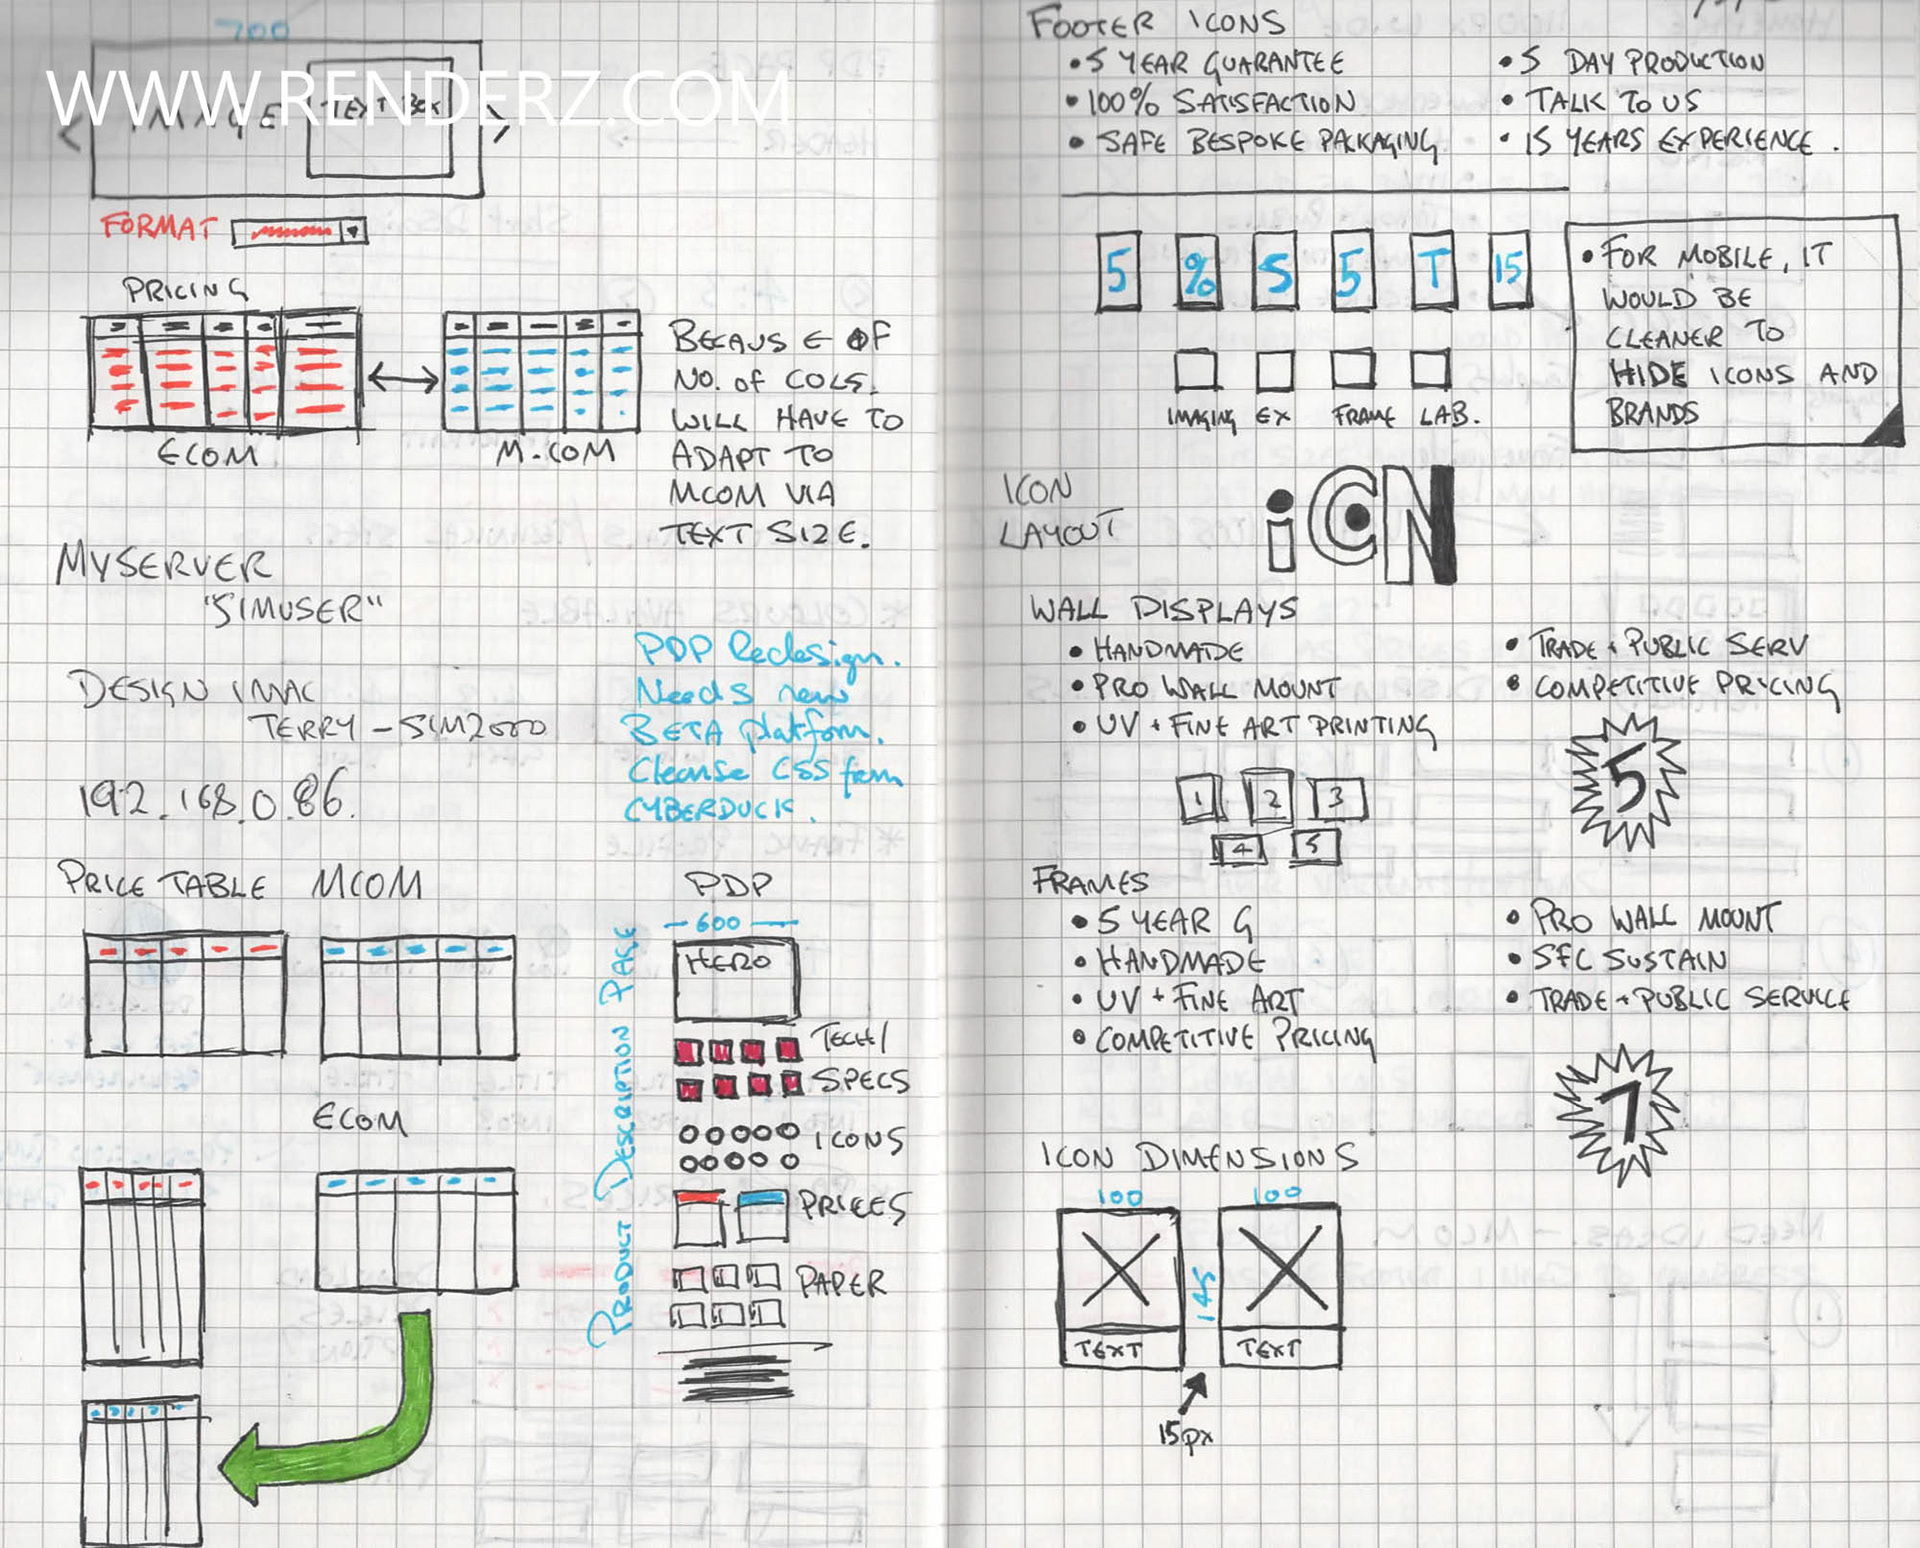 700
WWW.RENDERZ.COM
IMAGE
TEXT BOX
FORMAT
PRICING
ECOM
M.COM
BECAUSE OF
NO. of COLS.
WILL HAVE TO
ADAPT TO
MCOM VIA
TEXT SIZE.
MYSERVER
"SIMUSER"
DESIGN IMAC
TERRY - SIM2000
192.168.0.86.
PDP Redesign.
Needs new
BETA platform.
Cleanse CSS from
CYBERDUCK.
PRICE TABLE MCOM
ECOM
PDP
600
HERO
TECH/
SPECS
ICONS
PRICES
PAPER
PRODUCT DESCRIPTION PAGE
FOOTER ICONS
• 5 YEAR GUARANTEE
• 100% SATISFACTION
• SAFE BESPOKE PACKAGING
• 5 DAY PRODUCTION
• TALK TO US
• 15 YEARS EXPERIENCE.
5 % S 5 T 15
IMAGING EX FRAME LAB.
• FOR MOBILE, IT
WOULD BE
CLEANER TO
HIDE ICONS AND
BRANDS
ICON
LAYOUT
iCN
WALL DISPLAYS
• HANDMADE
• PRO WALL MOUNT
• UV + FINE ART PRINTING
• TRADE + PUBLIC SERV
• COMPETITIVE PRYCING
5
1 2 3
4 5
FRAMES
• 5 YEAR G
• HANDMADE
• UV + FINE ART
• COMPETITIVE PRICING
• PRO WALL MOUNT
• SFC SUSTAIN
• TRADE + PUBLIC SERVICE
7
ICON DIMENSIONS
100 100
145
TEXT TEXT
15px